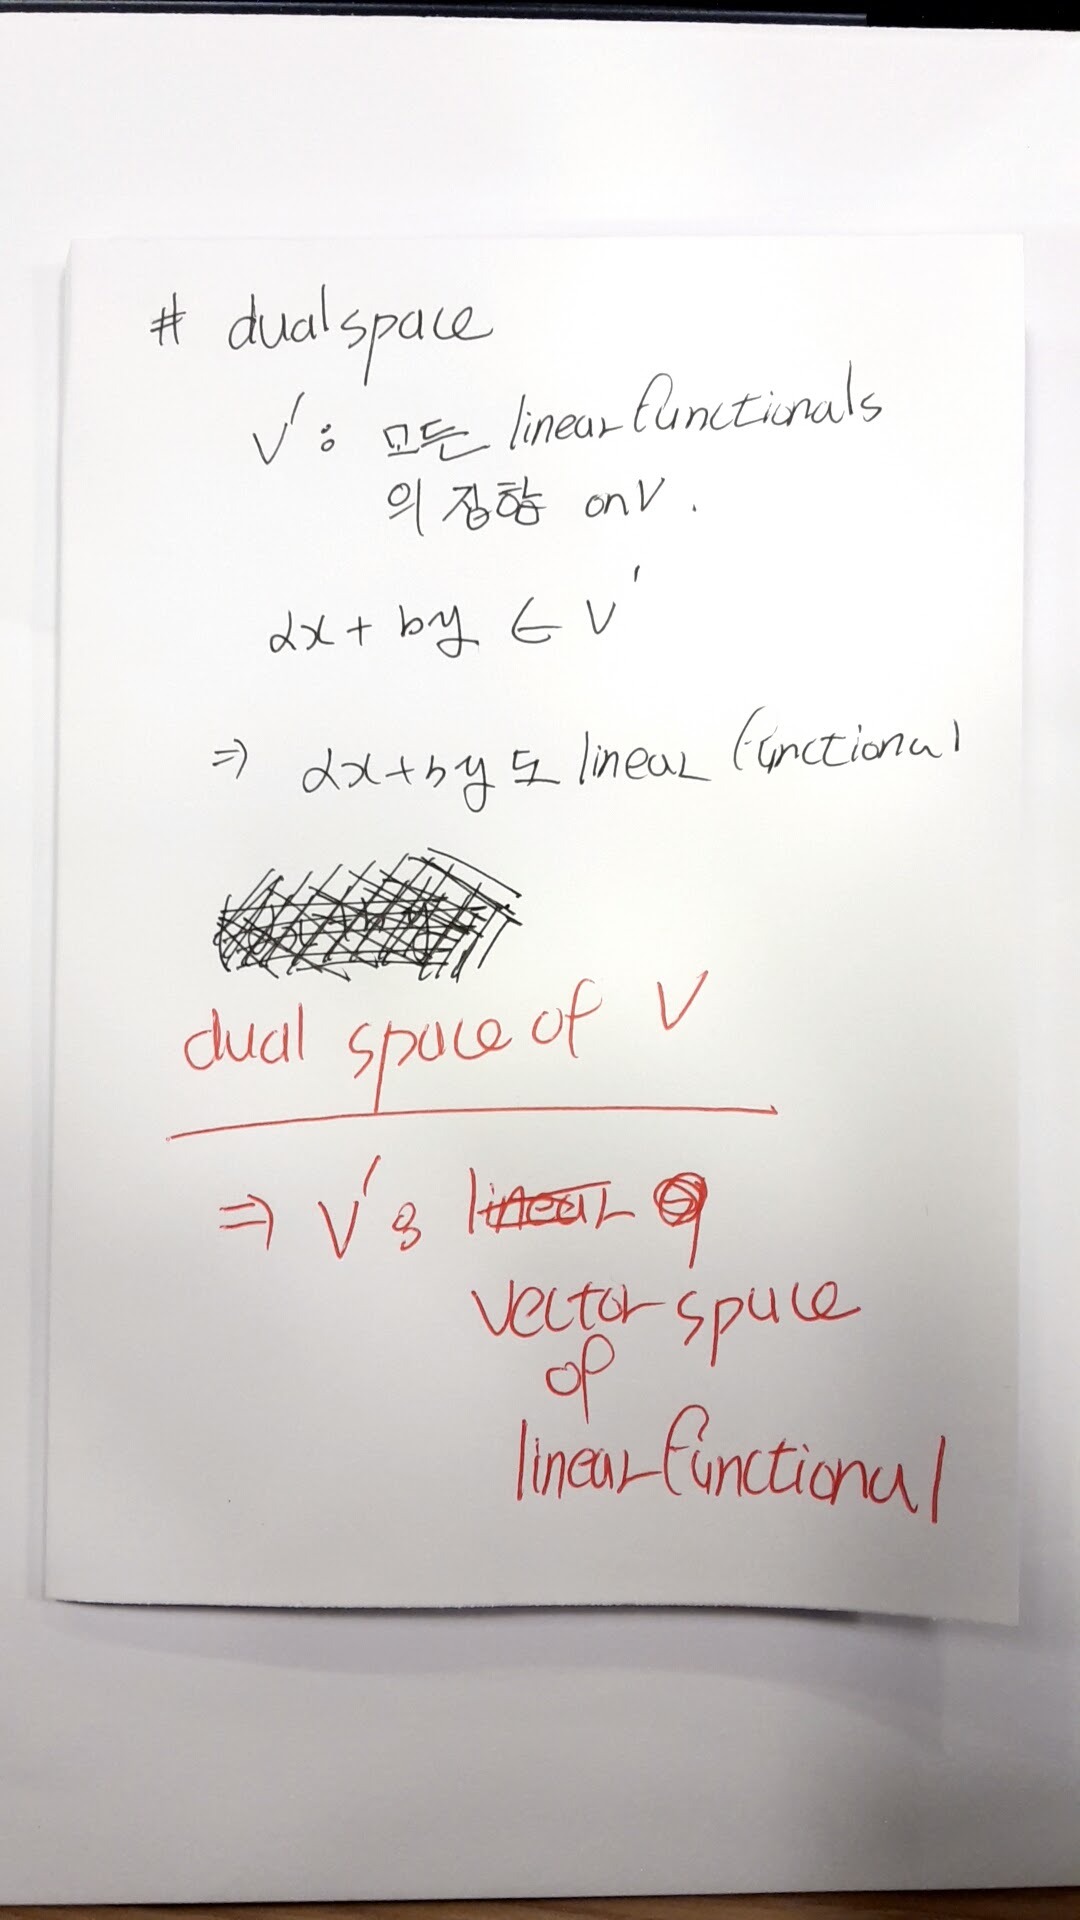 # dual space
V' : 모든 linear functionals
의 집합 on V.
αx + by ∈ V'
⇒ αx+by도 linear functional
dual space of V
⇒ V' : linear
vector space
of
linear functional